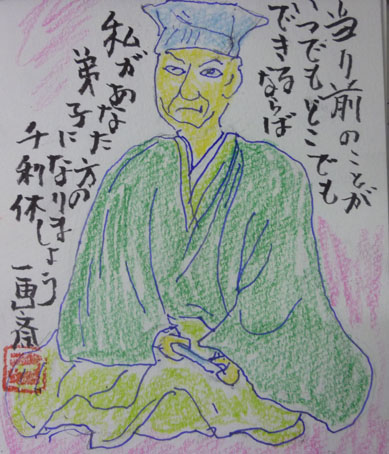 当り前のことが
いつでもどこでも
できる
ならば
私があなた方の
弟子になりましょう
千利休
一画斎